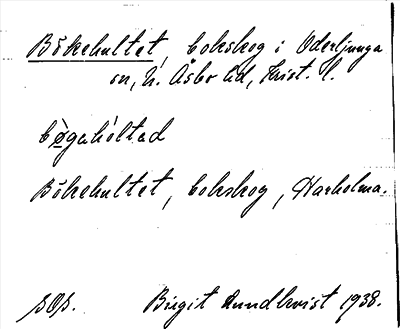 Bökehultet, bokskog i Oderljunga
sn, N. Åsbo hd, Krist. l.
bøgahóltad
Bökehultet, bokskog, Harholma.
SOS. Birgit Rundkvist 1938.